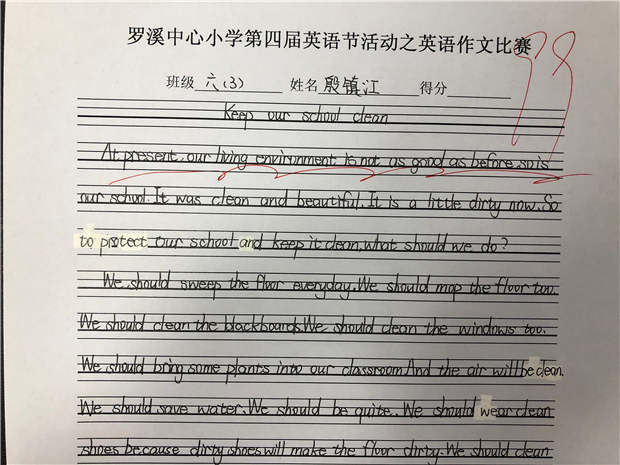 罗溪中心小学第四届英语节活动之英语作文比赛
班级 六(3) 姓名 殷镇江 得分
99
Keep our school clean
At present, our living environment is not as good as before, so is
our school. It was clean and beautiful. It is a little dirty now. So
to protect our school and keep it clean, what should we do?
We should sweep the floor everyday. We should mop the floor too.
We should clean the blackboards. We should clean the windows too.
We should bring some plants into our classroom. And the air will be clean.
We should save water. We should be quite. We should wear clean
shoes because dirty shoes will make the floor dirty. We should clean